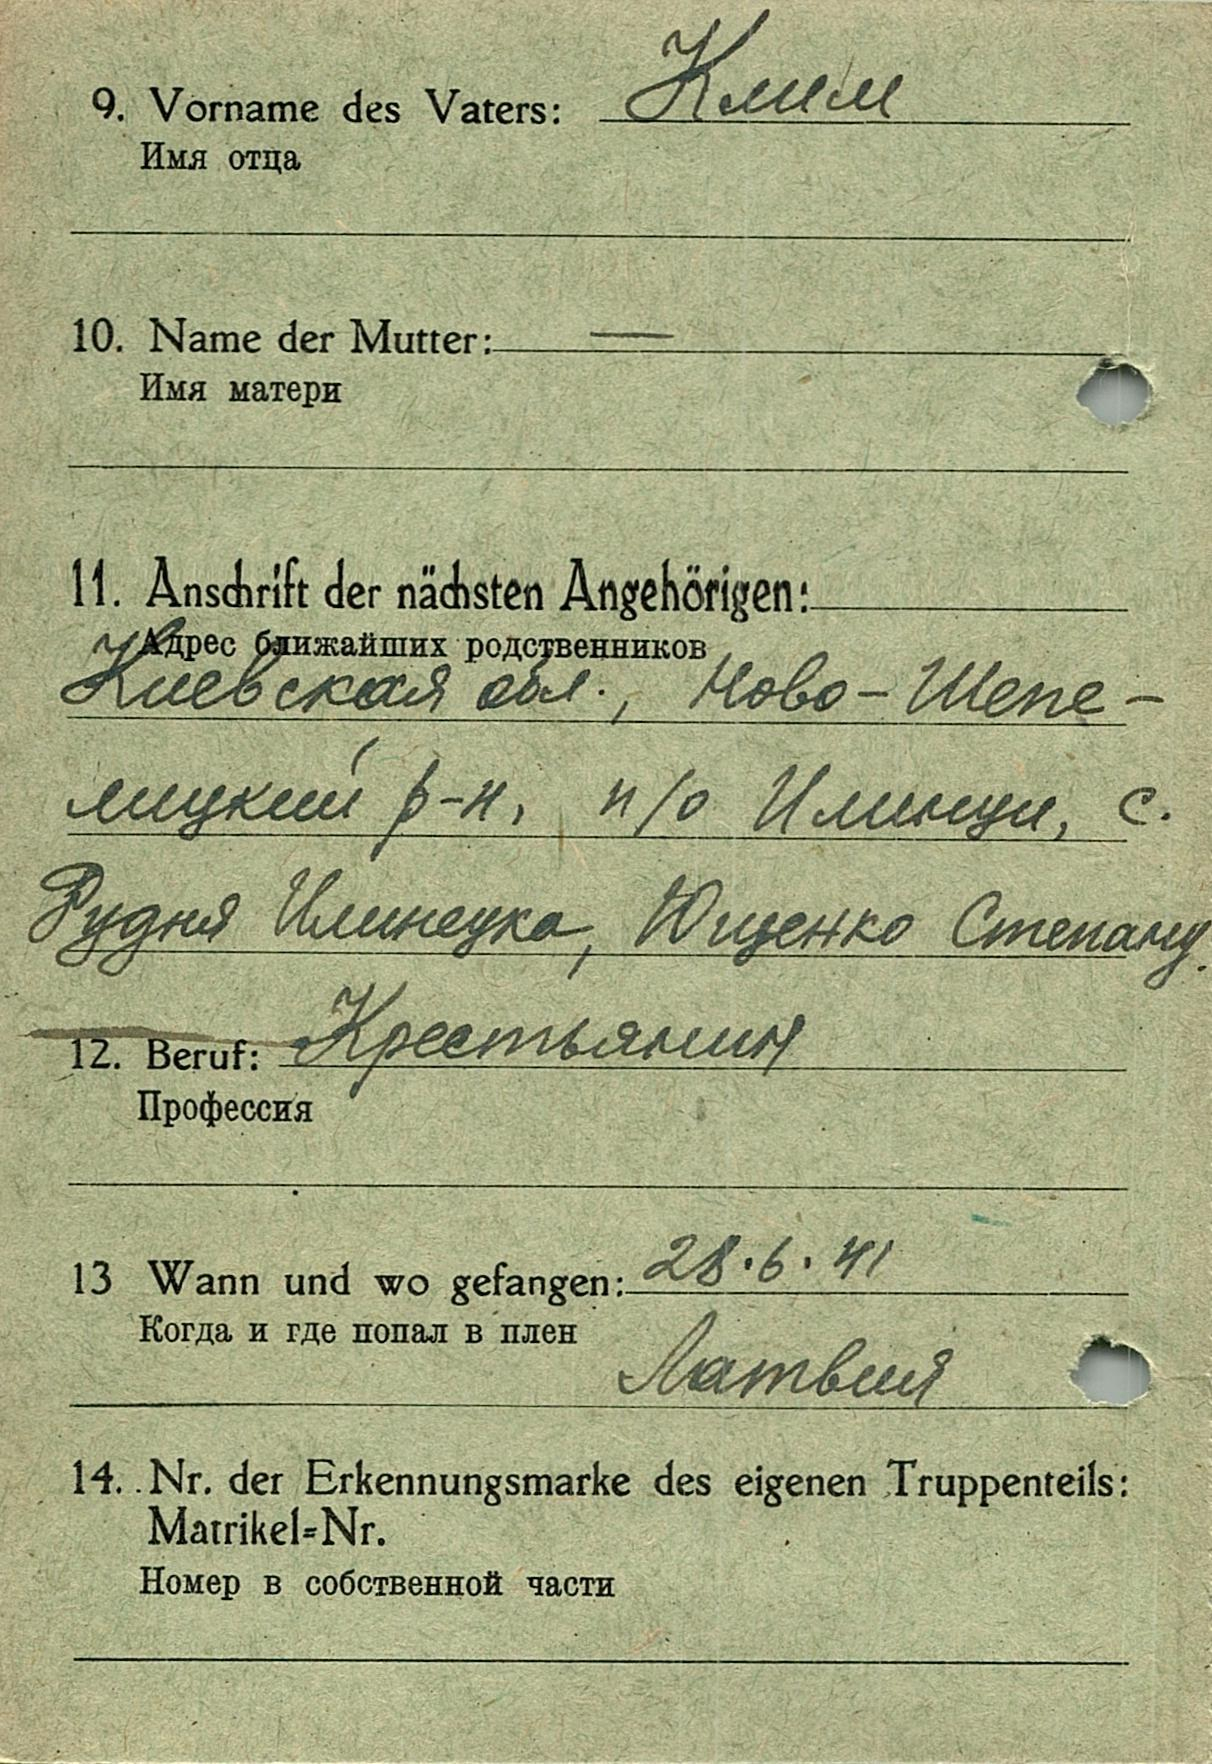 9. Vorname des Vaters: Клим
Имя отца
10. Name der Mutter: —
Имя матери
11. Anschrift der nächsten Angehörigen:
Адрес ближайших родственников
Киевская обл., Ново-Шепе-
лицкий р-н, п/о Илинци, с.
Рудня Илинецка, Ющенко Степану.
12. Beruf: Крестьянин
Профессия
13 Wann und wo gefangen: 28.6.41
Когда и где попал в плен
Латвия
14. Nr. der Erkennungsmarke des eigenen Truppenteils:
Matrikel=Nr.
Номер в собственной части